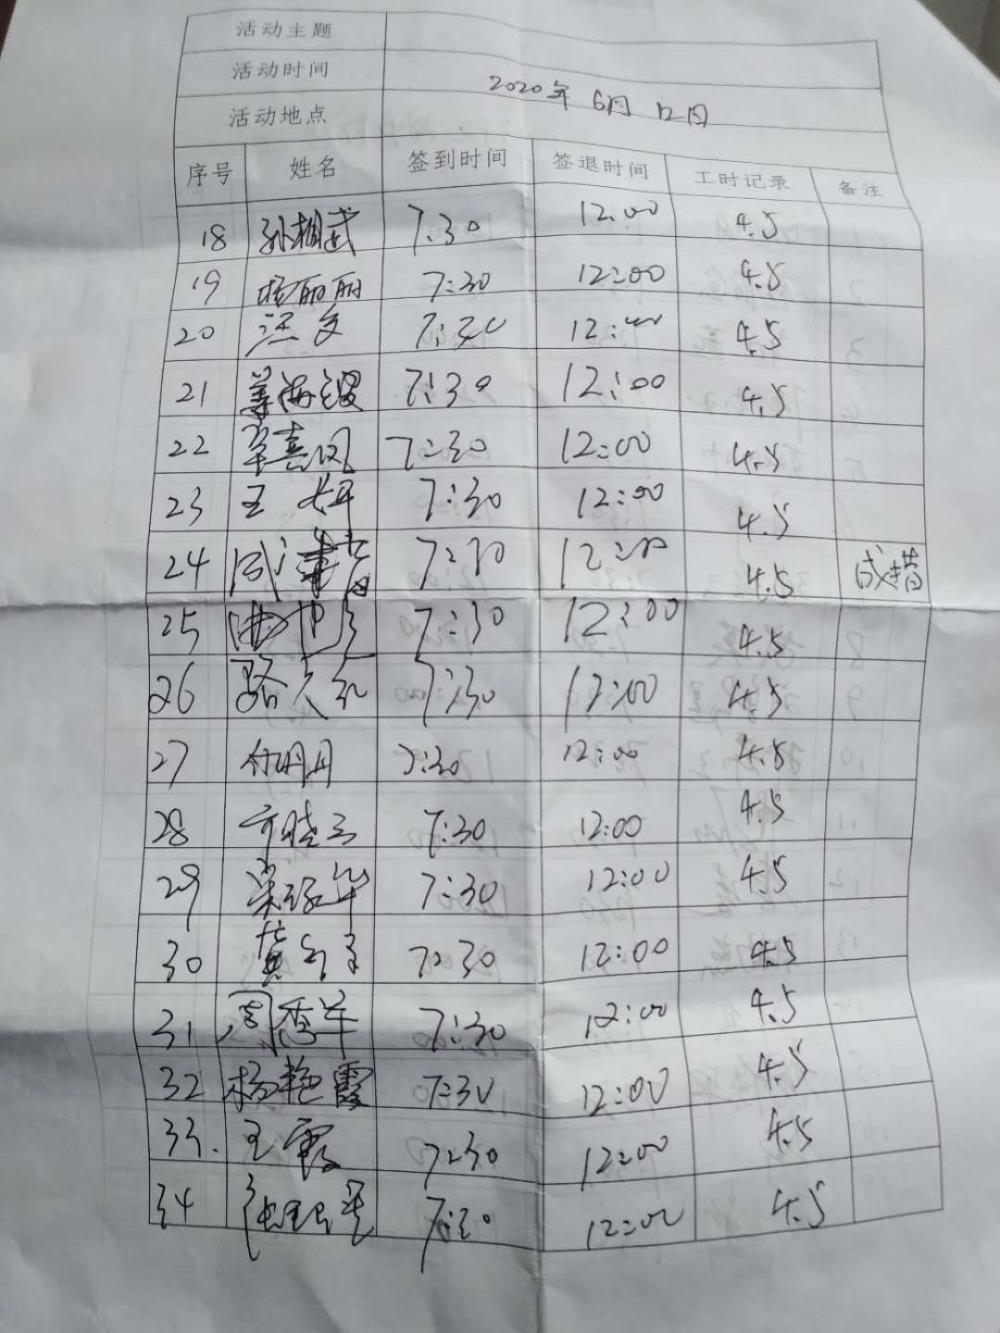 活动主题
活动时间 2020年 6月 12日
活动地点
序号 姓名 签到时间 签退时间 工时记录 备注
18 孙相武 7:30 12:00 4.5
19 丽丽 7:30 12:00 4.5
20 汪文 7:30 12:00 4.5
21 7:30 12:00 4.5
22 7:30 12:00 4.5
23 王 7:30 12:00 4.5
24 成 7:30 12:00 4.5 成措
25 7:30 12:00 4.5
26 7:30 12:00 4.5
27 付明月 7:30 12:00 4.5
28 7:30 12:00 4.5
29 7:30 12:00 4.5
30 7:30 12:00 4.5
31 周香 7:30 12:00 4.5
32 杨艳霞 7:30 12:00 4.5
33. 王霞 7:30 12:00 4.5
34 7:30 12:00 4.5